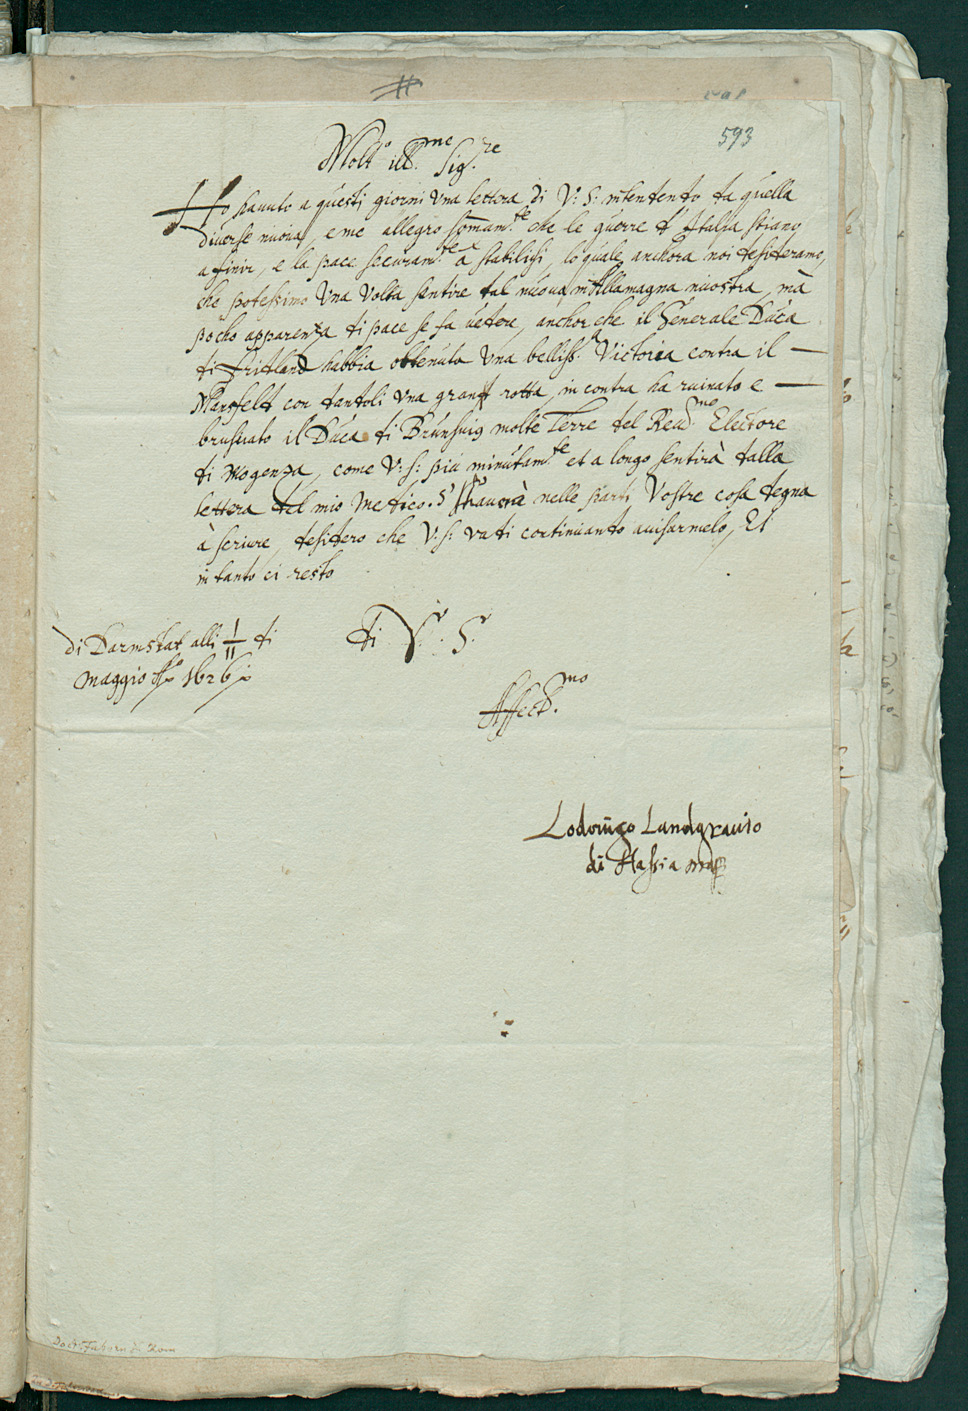 593
Molto ill.me Sig.re
Ho hauuto a questi giorni vna lettera di V: S: intentento ta quella
diuerse nuoua, e me allegro somam.te che le guerre t' Italia stiano
a finir, e la pace securam.te a stabilirsi, lo quale anchora noi tesiteramo,
che potessimo Vna Volta sentire tal nuoua in Allamagna nuostra, mà
pocho apparenza ti pace se fa uetere, anchor che il Generale Duca
ti Fritland habbia obtenuto Vna belliss.a Victoria contra il —
Mansfelt con tantoli vna granf rotta, in contra ha ruinato e —
brusciato il Duca ti Brunsuig molte Terre tel Reu.mo Electore
ti Mogenza, come V: S: piu minutam.te et a longo sentirà talla
lettera tel mio Metico. S' hauerà nelle parti Vostre cosa tegna
à scriure, tesitero che V: S: vati continuanto auisarmelo, Et
in tanto ci resto
di Darmstat alli 1/11 ti
Maggio 1626
ti V.: S.
Affect.mo
Lodouigo Landgrauio
di Hassia mp